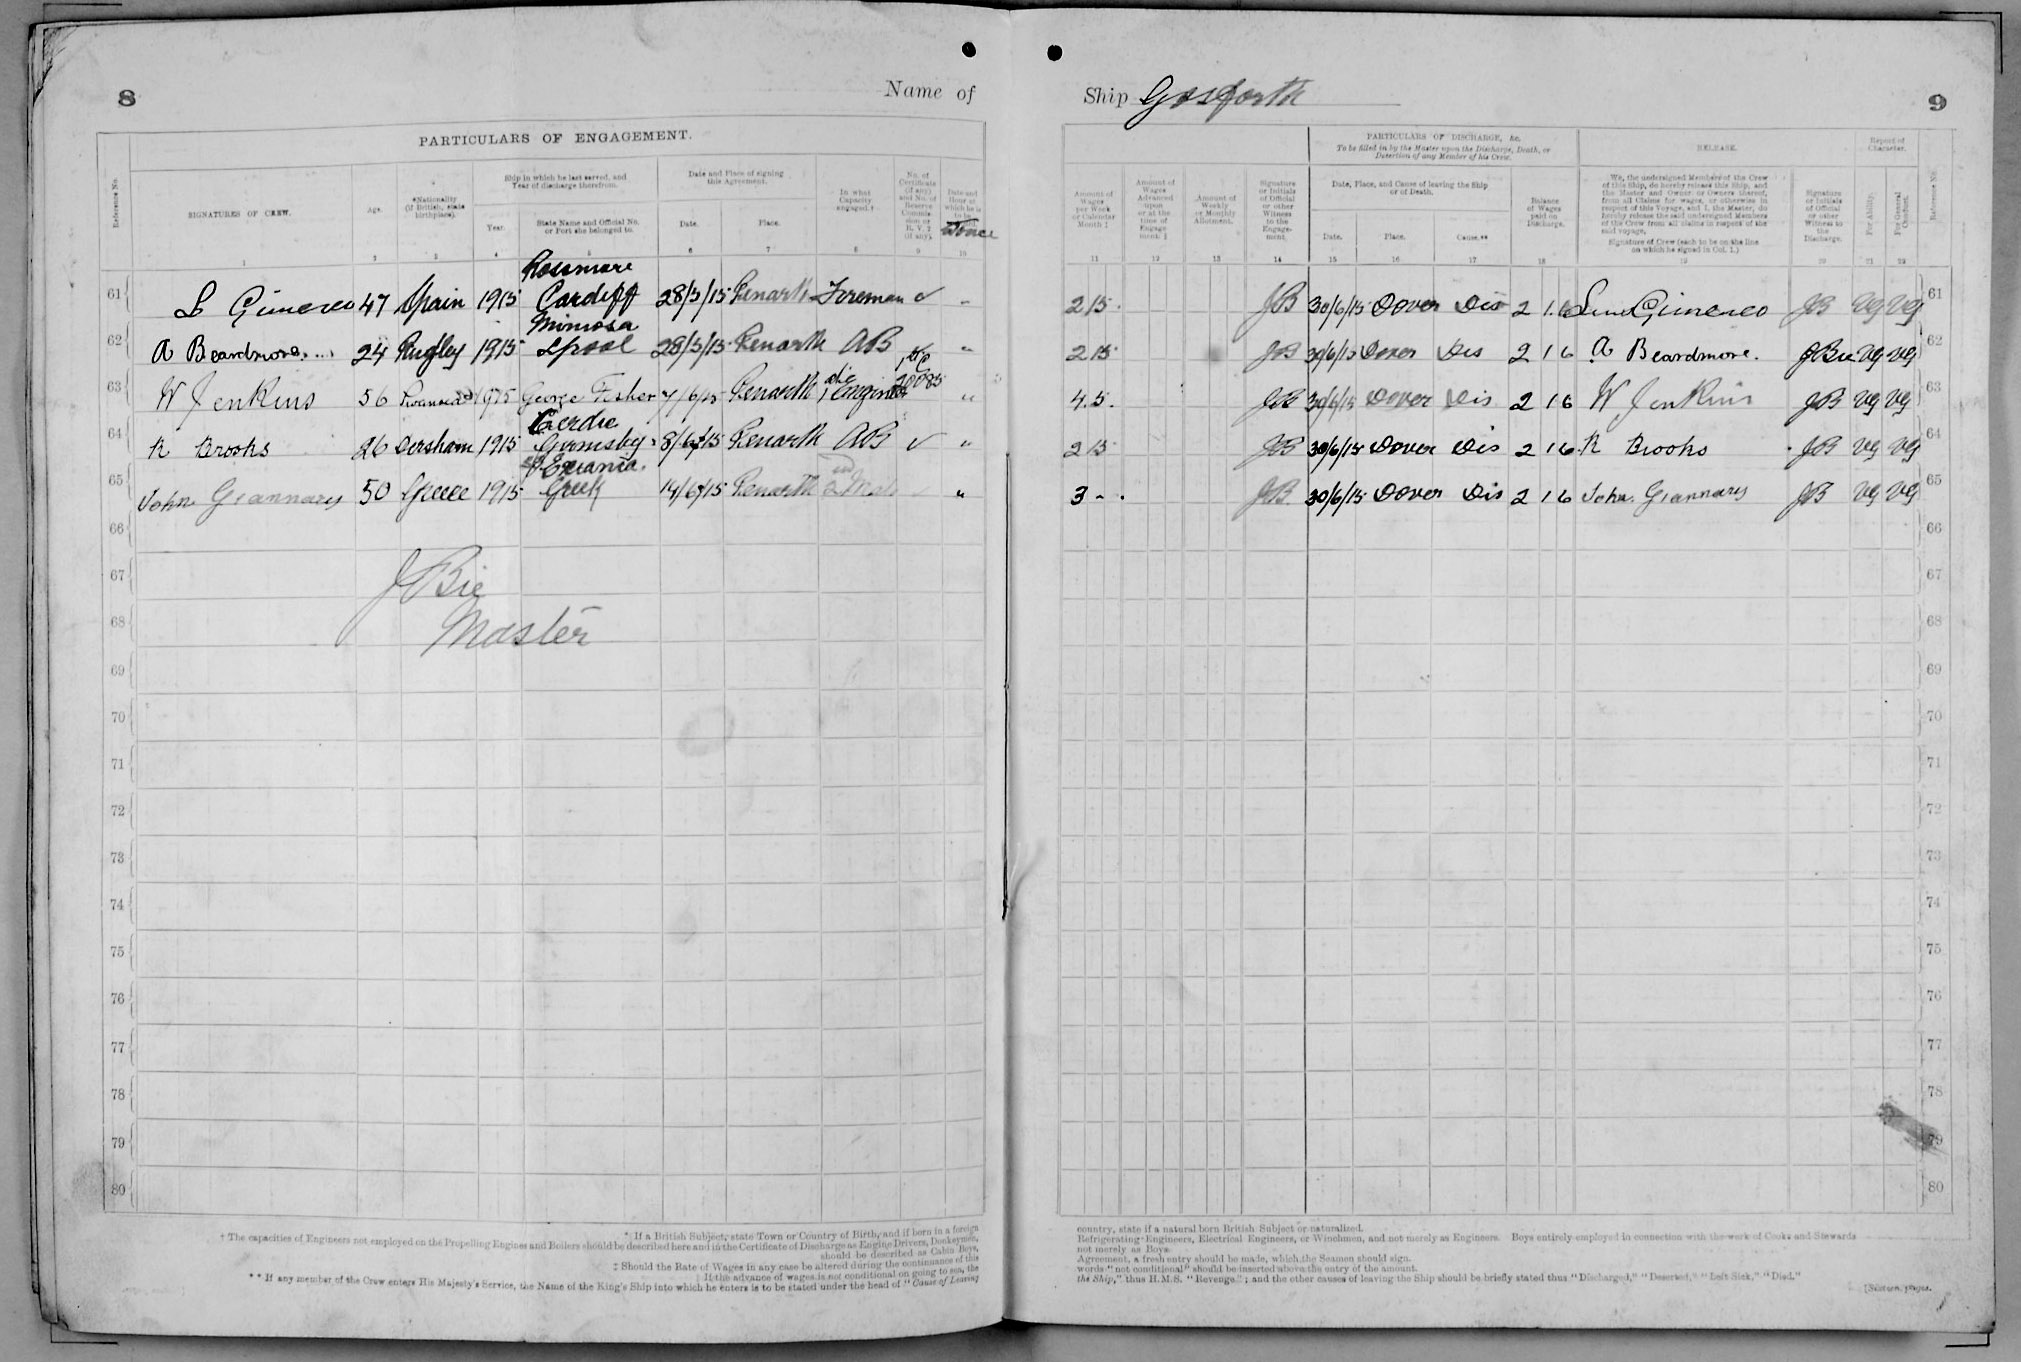 8
Name of
PARTICULARS OF ENGAGEMENT.
Reference No.
SIGNATURES OF CREW.
Age.
*Nationality (if British, state birthplace).
Ship in which he last served, and Year of discharge therefrom.
Year.
State Name and Official No. or Port she belonged to.
Date and Place of signing this Agreement.
Date.
Place.
In what Capacity engaged.†
No. of Certificate (if any) and No. of Reserve Commission or R.V.2 (if any).
Date and Hour at which he is to be
at once
1 2 3 4 5 6 7 8 9 10
Rossmore
61 L Gimeneo 47 Spain 1915 Cardiff 28/5/15 Penarth Fireman ✓ "
Mimosa
62 A Beardmore. 24 Rugley 1915 Lpool 28/5/15 Penarth AB "
63 W Jenkins 56 Swansea 1915 George Fisher 7/6/15 Penarth 1 Engineer "
Cerdic
64 R Brooks 26 Dersham 1915 Grimsby 8/6/15 Penarth AB ✓ "
65 John Giannarys 50 Greece 1915 Greek 14/6/15 Penarth 2 Mate "
66
67
J Bie
68
Master
69
70
71
72
73
74
75
76
77
78
79
80
* If a British Subject, state Town or Country of Birth, and if born in a foreign
† The capacities of Engineers not employed on the Propelling Engines and Boilers should be described here and in the Certificate of Discharge as Engine Drivers, Donkeymen,
should be described as Cabin Boys,
‡ Should the Rate of Wages in any case be altered during the continuance of this
If the advance of wages is not conditional on going to sea, the
** If any member of the Crew enters His Majesty's Service, the Name of the King's Ship into which he enters is to be stated under the head of "Cause of Leaving
Ship Gosforth
9
Amount of Wages per Week or Calendar Month ‡
Amount of Wages Advanced upon or at the time of Engagement.§
Amount of Weekly or Monthly Allotment.
Signature or Initials of Official or other Witness to the Engagement.
PARTICULARS OF DISCHARGE, &c.
To be filled in by the Master upon the Discharge, Death, or Desertion of any Member of his Crew.
Date, Place, and Cause of leaving the Ship or of Death.
Date.
Place.
Cause.**
Balance of Wages paid on Discharge.
RELEASE.
We, the undersigned Members of the Crew of this Ship, do hereby release this Ship, and the Master and Owner or Owners thereof, from all Claims for wages, or otherwise in respect of this Voyage, and I, the Master, do hereby release the said undersigned Members of the Crew from all claims in respect of the said voyage.
Signature of Crew (each to be on the line on which he signed in Col. 1.)
Signature or Initials of Official or other Witness to the Discharge.
Report of Character.
For Ability.
For General Conduct.
Reference No.
11 12 13 14 15 16 17 18 19 20 21 22
2 15 . JB 30/6/15 Dover Dis 2 1 6 Gimeneo JB VG VG 61
2 15 JB 30/6/15 Dover Dis 2 1 6 A Beardmore. JBie VG VG 62
4. 5. JB 30/6/15 Dover Dis 2 1 6 W Jenkins JB VG VG 63
2 15 JB 30/6/15 Dover Dis 2 1 6 R Brooks JB VG VG 64
3 - . JB 30/6/15 Dover Dis 2 1 6 John Giannarys JB VG VG 65
66
67
68
69
70
71
72
73
74
75
76
77
78
79
80
country, state if a natural born British Subject or naturalized.
Refrigerating Engineers, Electrical Engineers, or Winchmen, and not merely as Engineers. Boys entirely employed in connection with the work of Cooks and Stewards
not merely as Boys.
Agreement, a fresh entry should be made, which the Seamen should sign.
words "not conditional" should be inserted above the entry of the amount.
the Ship," thus H.M.S. "Revenge"; and the other causes of leaving the Ship should be briefly stated thus "Discharged," "Deserted," "Left Sick," "Died."
[Sixteen pages.